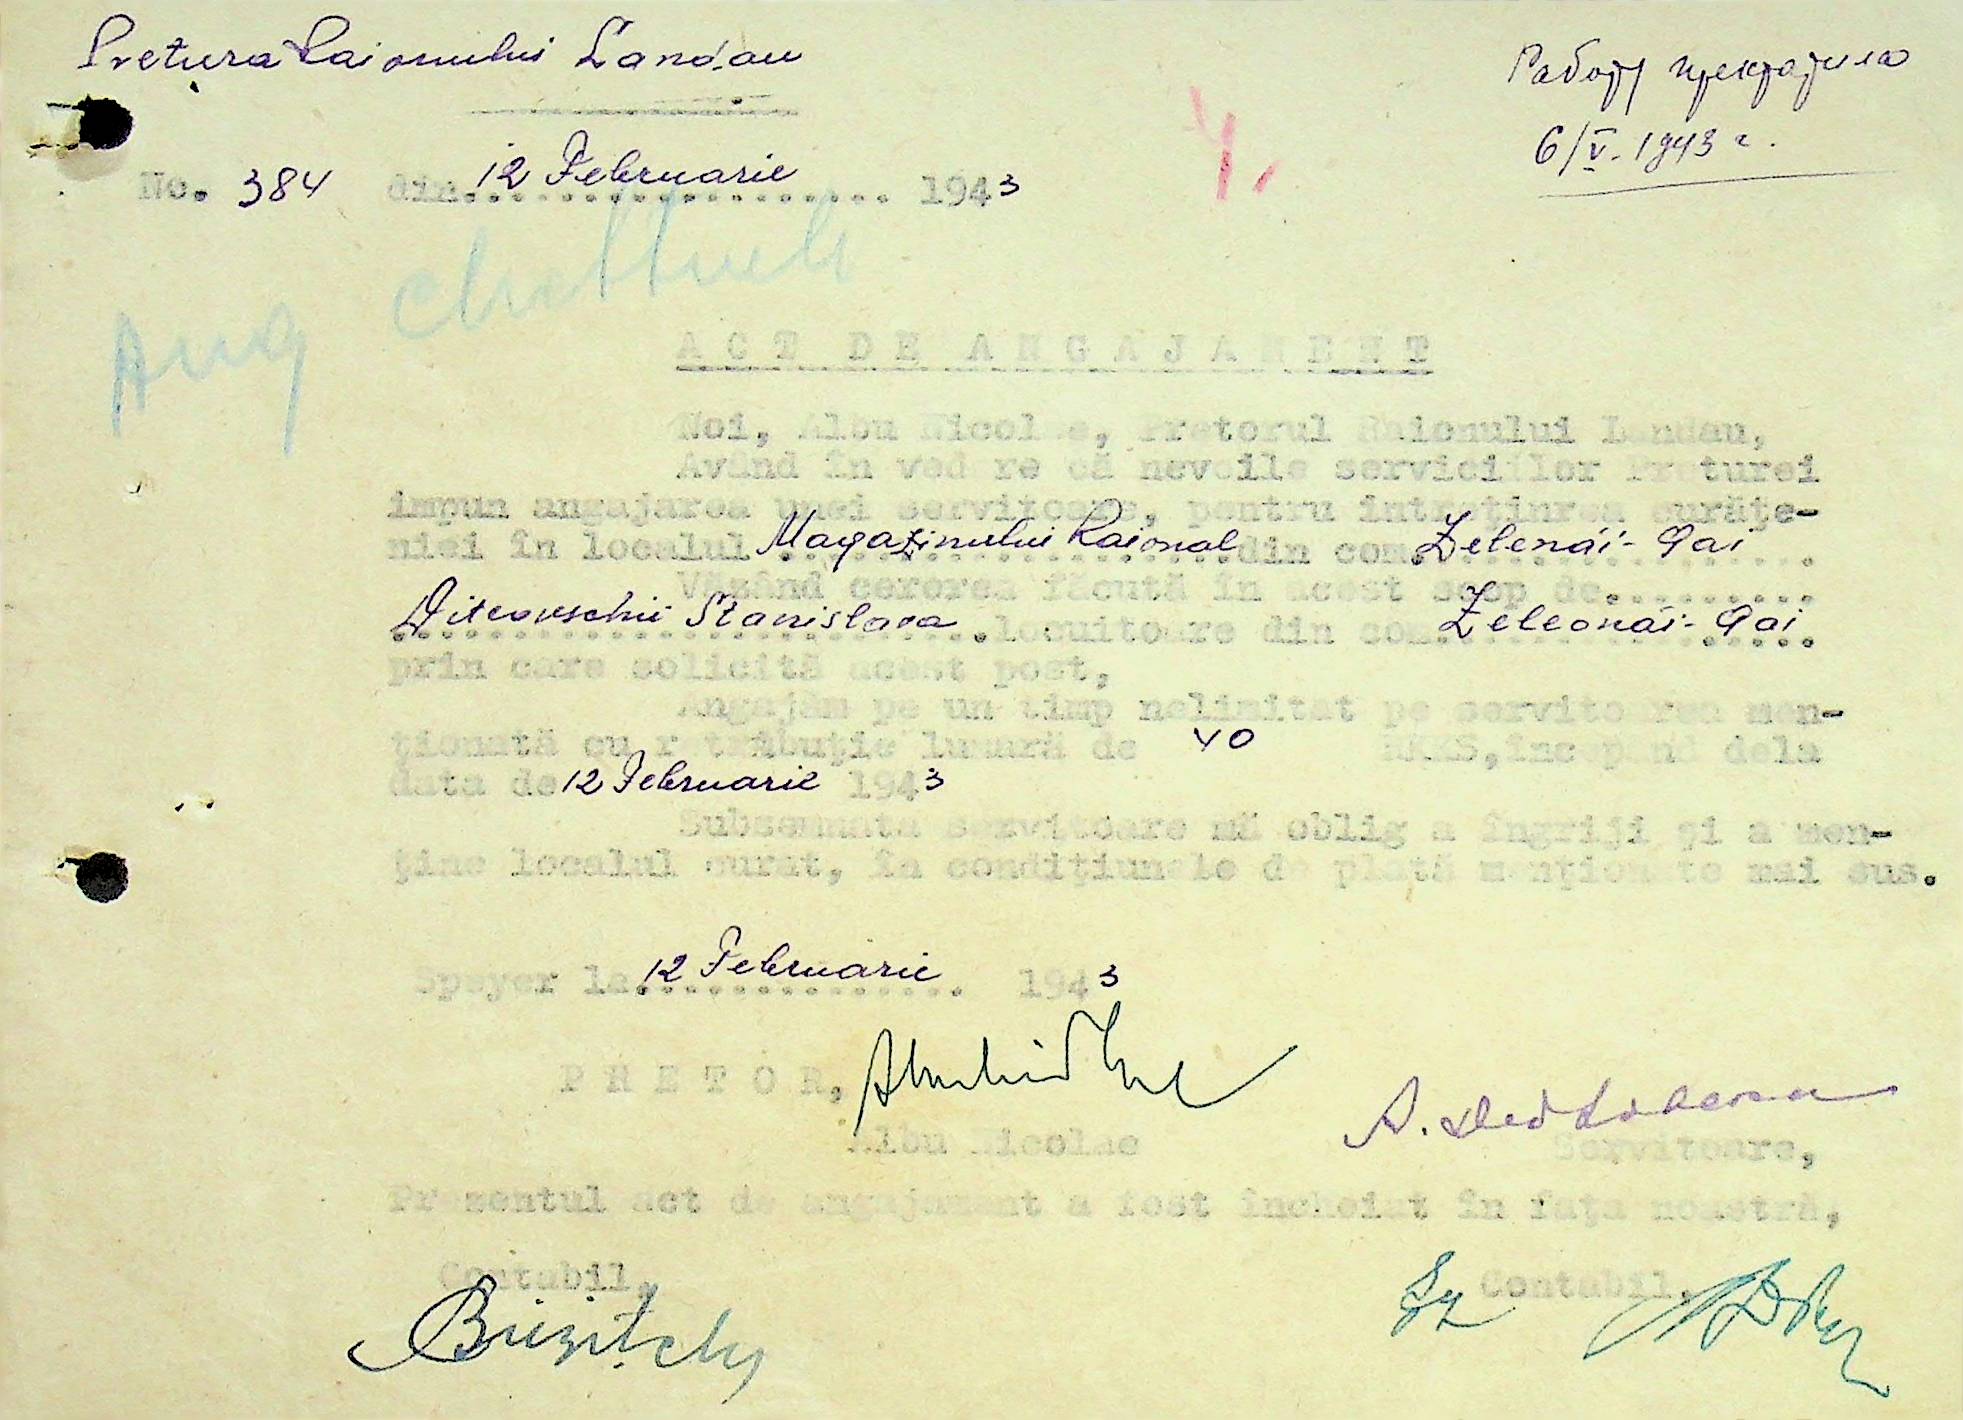 Pretura Raionului Landau
Работу прекратила
6/V. 1943 г.
No. 384 din 12 Februarie 1943
Ang
ACT DE ANGAJAMENT
Noi, Albu Nicolae, Pretorul Raionului Landau,
Având în vedere că nevoile serviciilor Preturei
impun angajarea unei servitoare, pentru întreţinrea curăţe-
niei în localul Magazinului Raional din com. Zelenái-Gai
Văzând cererea făcută în acest scop de.........
Ditcovschii Stanislava locuitoare din com. Zeleonái-Gai
prin care solicită acest post,
Angajăm pe un timp nelimitat pe servitoarea men-
ţionată cu retribuţie lunară de 40 RKKS, începând dela
data de 12 Februarie 1943
Subsemnata servitoare mă oblig a îngriji şi a men-
ţine localul curat, în condiţiunele de plată menţionate mai sus.
Speyer la 12 Februarie 1943
PRETOR,
Albu Nicolae
Servitoare,
Prezentul act de angajament a fost încheiat în faţa noastră,
Contabil,
Contabil,